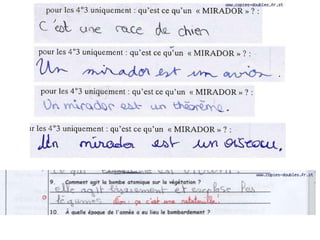 www.copies-doubles.fr.st
pour les 4°3 uniquement : qu'est ce qu'un « MIRADOR » ? :
C'est une race de chien
pour les 4°3 uniquement : qu'est ce qu'un « MIRADOR » ? :
Un mirador est un avion.
pour les 4°3 uniquement : qu'est ce qu'un « MIRADOR » ? :
Un mirador est un théorème.
ur les 4°3 uniquement : qu'est ce qu'un « MIRADOR » ? :
Un mirador est un oiseau.
www.copies-doubles.fr.st
9. Comment agit la bombe atomique sur la végétation ?
elle agit bizarement et explose les
0 légumes Non : ça c'est une ratatouille!
10. À quelle époque de l'année a eu lieu le bombardement ?